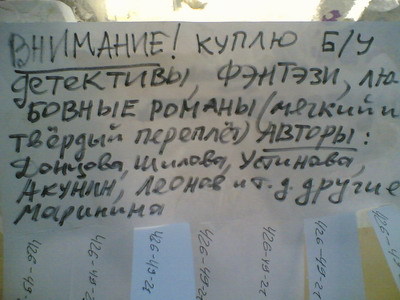 ВНИМАНИЕ! КУПЛЮ Б/У
детективы, ФЭНТЭЗИ, лю
БОВНЫЕ РОМАНЫ (мягкий и
твёрдый переплёт) АВТОРЫ:
Донцова, Шилова, Устинова,
АКУНИН, Леонов и т. д. другие
Маринина
426-49-2
426-49-2
426-49-22
426-49-2
426-49-22
426-49-22
426-49-